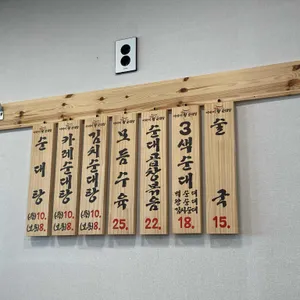 순대탕
(특)10.
(보통)8.
카레순대탕
(특)10.
(보통)8.
김치순대탕
(특)10.
(보통)8.
모듬수육
25.
순대곱창볶음
22.
3색순대
18.
술국
15.